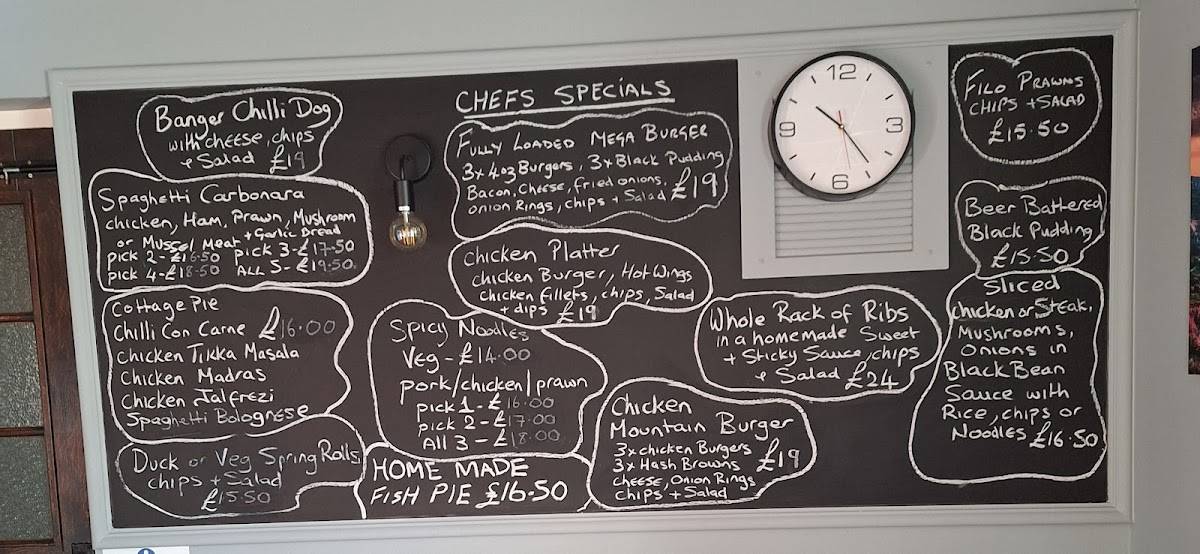 CHEFS SPECIALS
Banger Chilli Dog
with cheese, chips
+ Salad £19
Spaghetti Carbonara
chicken, Ham, Prawn, Mushroom
or Mussel Meat + Garlic Bread
pick 2-£16.50 pick 3-£17.50
pick 4-£18.50 ALL 5-£19.50
Cottage Pie
Chilli Con Carne £16.00
Chicken Tikka Masala
Chicken Madras
Chicken Jalfrezi
Spaghetti Bolognese
Duck or Veg Spring Rolls
chips + Salad
£15.50
Fully Loaded Mega Burger
3x4oz Burgers, 3xBlack Pudding
Bacon, Cheese, fried onions,
onion Rings, chips + Salad £19
Chicken Platter
chicken Burger, Hot Wings
Chicken fillets, chips, Salad
+ dips £19
Spicy Noodles
Veg - £14.00
pork/chicken/prawn
pick 1 - £16.00
pick 2 - £17.00
All 3 - £18.00
HOME MADE
FISH PIE £16.50
Chicken
Mountain Burger
3xchicken Burgers £19
3x Hash Browns
cheese, Onion Rings
chips + Salad
Whole Rack of Ribs
in a homemade Sweet
+ Sticky Sauce, chips
+ Salad £24
12
3
6
9
Filo Prawns
CHIPS + SALAD
£15.50
Beer Battered
Black Pudding
£15.50
Sliced
chicken or Steak,
Mushrooms,
Onions in
Black Bean
Sauce with
Rice, chips or
Noodles £16.50